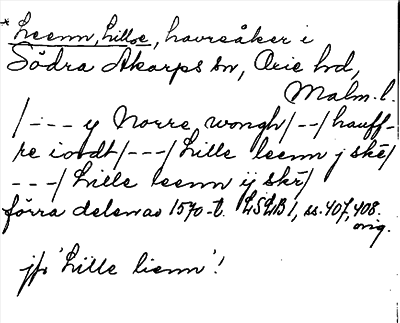 * Leenn, Lilloe, havreåker i
Södra Åkarps sn, Oxie hd,
Malm. l.
/--- y Norre wongh/--/hauff-
re iordt/---/Lille leenn j skē/
---/Lille leenn ij skē/
förra delen av 1570-t. LSLB 1, ss. 407, 408.
orig.
jfr 'Lille lienn'!